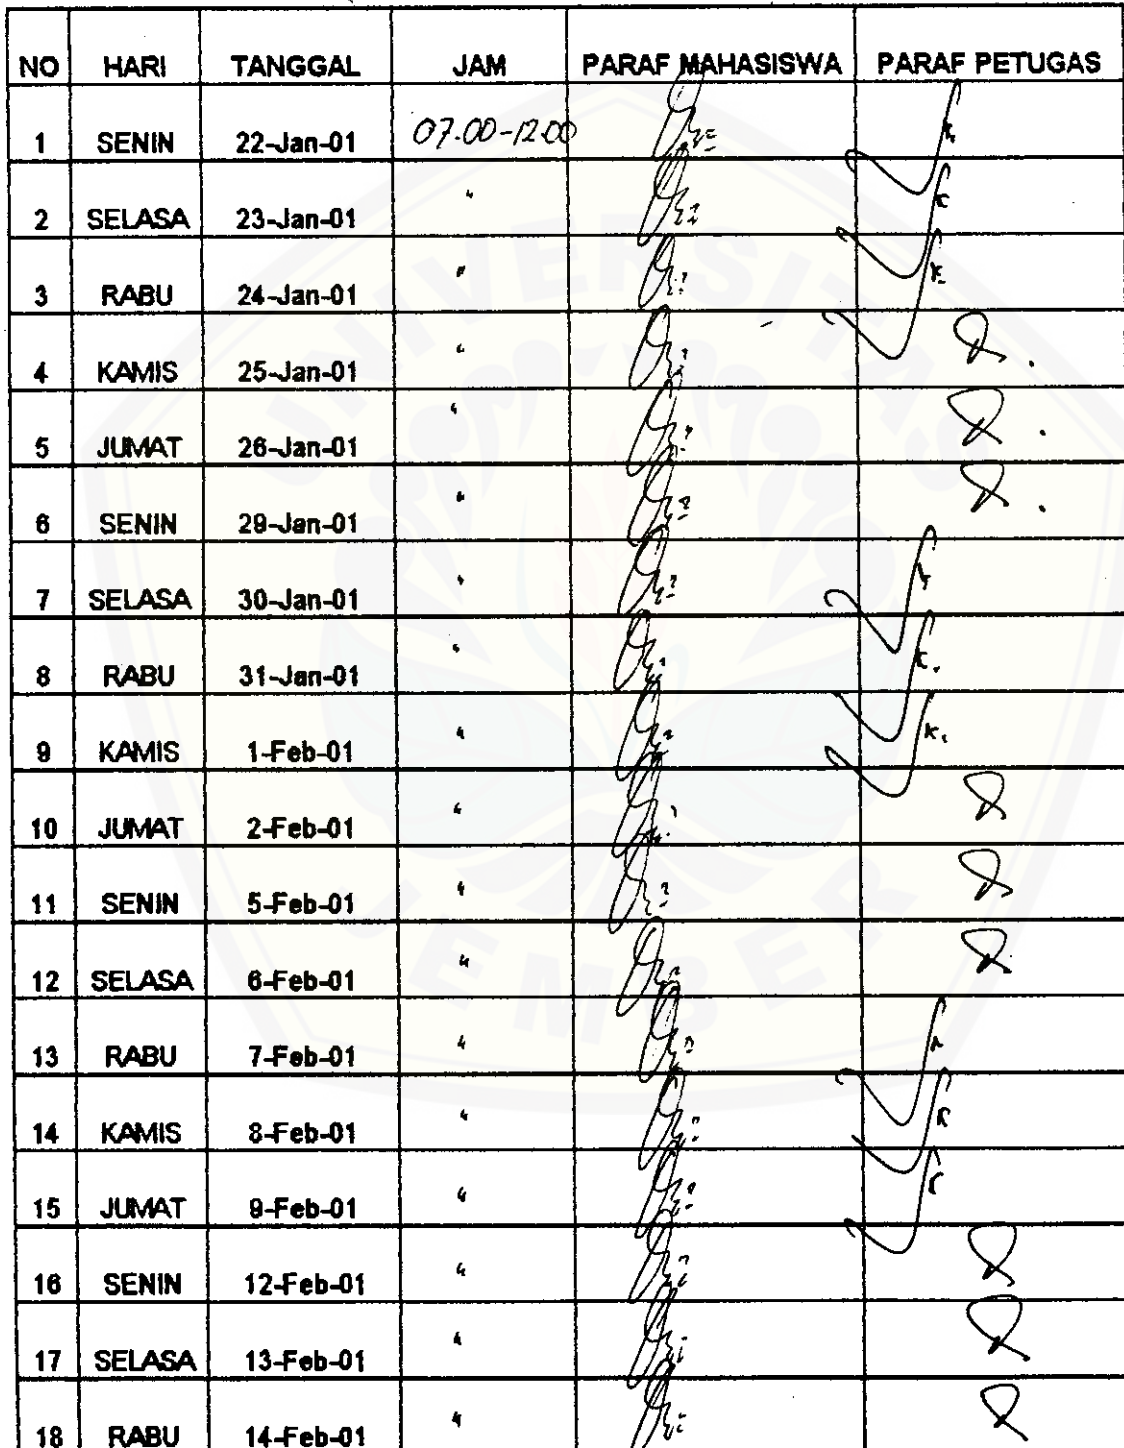 NO HARI TANGGAL JAM PARAF MAHASISWA PARAF PETUGAS
1 SENIN 22-Jan-01 07.00-12.00
2 SELASA 23-Jan-01 "
3 RABU 24-Jan-01 "
4 KAMIS 25-Jan-01 "
5 JUMAT 26-Jan-01 "
6 SENIN 29-Jan-01 "
7 SELASA 30-Jan-01 "
8 RABU 31-Jan-01 "
9 KAMIS 1-Feb-01 "
10 JUMAT 2-Feb-01 "
11 SENIN 5-Feb-01 "
12 SELASA 6-Feb-01 "
13 RABU 7-Feb-01 "
14 KAMIS 8-Feb-01 "
15 JUMAT 9-Feb-01 "
16 SENIN 12-Feb-01 "
17 SELASA 13-Feb-01 "
18 RABU 14-Feb-01 "
UNIVERSITAS
JEMBER